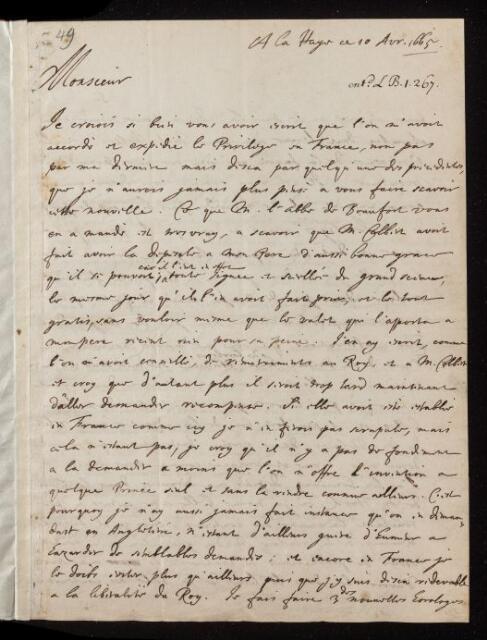 49
A la Haye ce 10 Avr. 1665.
Monsieur
ent.d L.B.1.267.
Je croiois si bien vous avoir escrit que l'on m'avoit
accordè et expediè le Privilege en France, non pas
par ma derniere mais desia par quelqu'une des precedentes,
que je n'aurois jamais plus pensè a vous faire scavoir
cette nouvelle. Ce que M. l'abbè de Beaufort vous
en a mandè est tresvray, a scavoir que M. Colbert avoit
fait avoir la depesche a mon Pere d'aussi bonne grace
qu'il se pouvoit, car il l'eut en effect
toute signee et seellée du grand sceau,
le mesme jour qu'il l'en avoit fait prier, et le tout
gratis, sans vouloir mesme que le valet qui l'apporta a
mon pere receut rien pour sa peine. J'en ay escrit, comme
l'on m'avoit conseillè, de remerciments au Roy, et a M. Colbert
et croy que d'autant plus il seroit trop tard maintenant
d'aller demander recompense. Si elle avoit estè establie
en France comme icy je n'en ferois pas scrupule, mais
cela n'estant pas, je croy qu'il n'y a pas de fondement
a la demander a moins que l'on n'offre l'invention a
quelque Prince seul et sans la rendre commune ailleurs. C'est
pourquoy je n'ay aussi jamais fait instance qu'on en deman-
dast en Angleterre, n'estant d'ailleurs guere d'humeur a
hazarder de semblables demandes: et encore en France je
le doibs eviter plus qu'ailleurs puis que j'y suis desia redevable
a la liberalitè du Roy. Je fais faire 3 nouvelles horologes